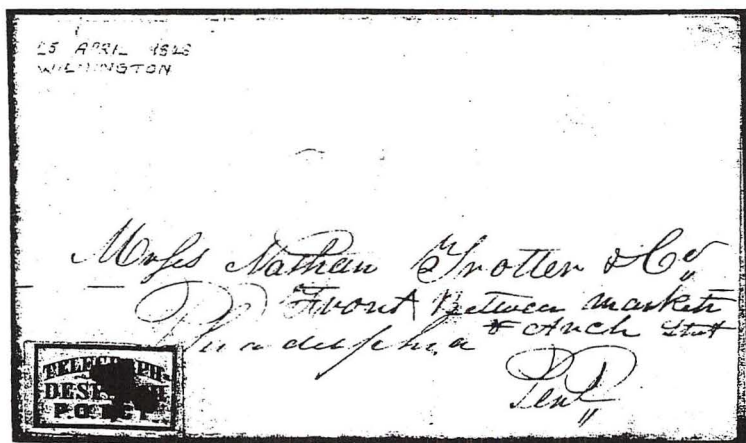 25 APRIL 1828
WILMINGTON
Messs Nathan Trotter & Co
Front Between market
& Arch Street
Philadelphia
Penn
TELEGRAPH
DESPATCH
P.O.